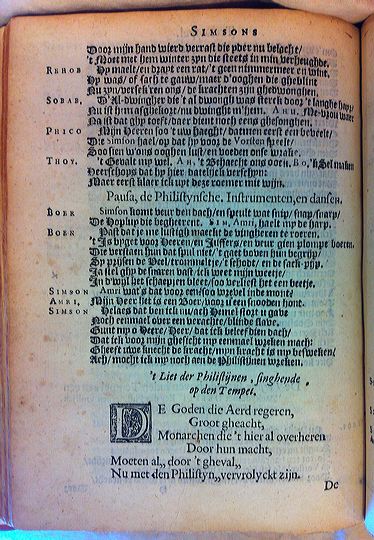 SIMSONS
Door mijn hand wierd verrast die yder nu belacht/
't Moet met hem winter zyn die steets in min verheughde.
REHOB Hy maelt/en draeyt een rat/'t geen nimmermeer en wint,
Hy was/ of sach te gauw/maer d'ooghen die gheblint
Nu zyn/versekeren ons/ de krachten zijn ghedwonghen.
SOBAB, D'Al-dwingher die 't al dwongh was sterck door 't langhe hayr/
Nu ist hem afghekort/nu dwinght m'hem. AHR. Me-vrou waer
Na ist dat ghy vorst/daer dient toch eens ghesonghen.
PHICO Mijn Heeren soo 't uw haeght/datmen eerst een beveele/
Die Simson hael/op dat hy voor de Vorsten speele/
Soo sien w'ons ooghen lust/en voeden onse wrake.
THOY. 't Gevalt my wel. AH. 't Behaecht ons oock. BO, 'k Sel maken
Heerschops dat hy hier datelijck verschijn:
Maer eerst klaer ick up/ deze roemer mit wijn.
Pausa, de Philistynsche. Instrumenten, en dansen.
BOER Simson komt veur den dach/en speult wat snip/snap/snarp/
De Hopluy die begheerent. SIM, Amri, haelt my de harp.
BOER Past dat je me lustigh maeckt de vingheren te roeren.
't Is byget voor Heeren/en Juffers/en veur gien plompe boeren.
Die verstaen hun dat spul niet/'t gaet boven hun begrijp/
Sy prysen de Bel/trommeltje/schodt/ en de sack-pijp.
Ja stel ghy de snaren vast/ick weet mijn weetje/
In dwijl het schaepjen bleet/soo verliest het een beetje.
SIMSON Amri wat's dat voor een/soo wrevel inde mont?
AMRI, Mijn Heer het is een Boer/voor uwe snooden hont.
SIMSON Helaes dat ben ick nu/ach Hemel stort u gave
Noch eenmael over een verachte/blinde slave.
Gunt my o Heer/ Heer/ dat ick beleef dien dach/
Dat ick voor mijn ghesicht my eenmael wreken mach:
Gheeft uwe knecht de kracht/myn kracht is my besweken/
Ach/ mocht ick my noch aen de Philistijnen wreken.
't Liet der Philistijnen, singhende
op den Tempel.
DE Goden die Aerd regeren,
Groot gheacht,
Monarchen die 't hier al overheren
Door hun macht,
Moeten al,, door 't gheval,,
Nu met den Philistyn,, vervrolyckt zijn.
De